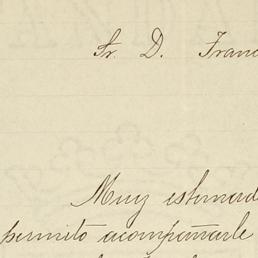 Sr. D. Franc
Muy estimad
permito acompañarle